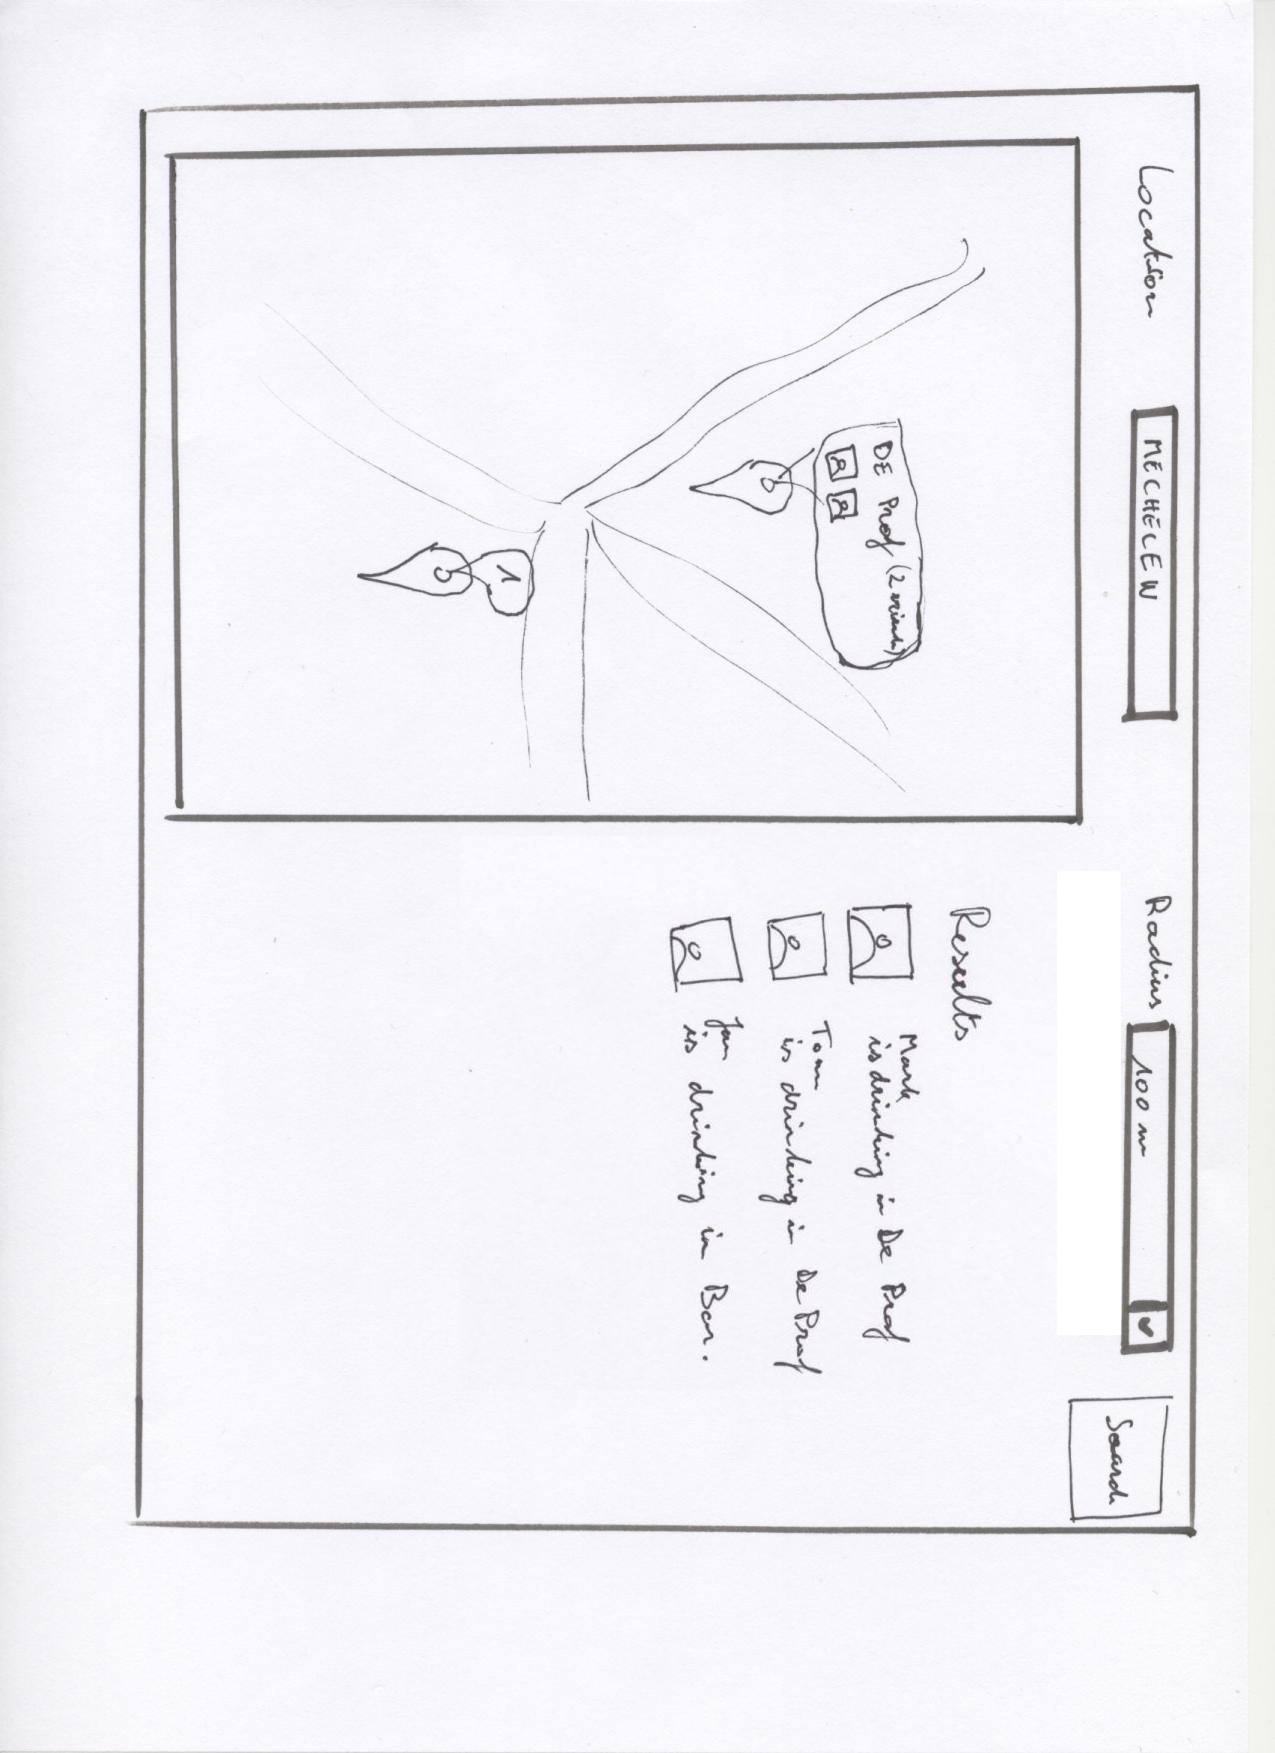 Location
MECHELEN
Radius
100 m
Search
DE Prof (2
1
Results
Mark
is drinking in De Prof
Tom
is drinking in De Prof
Jan
is drinking in Bar.